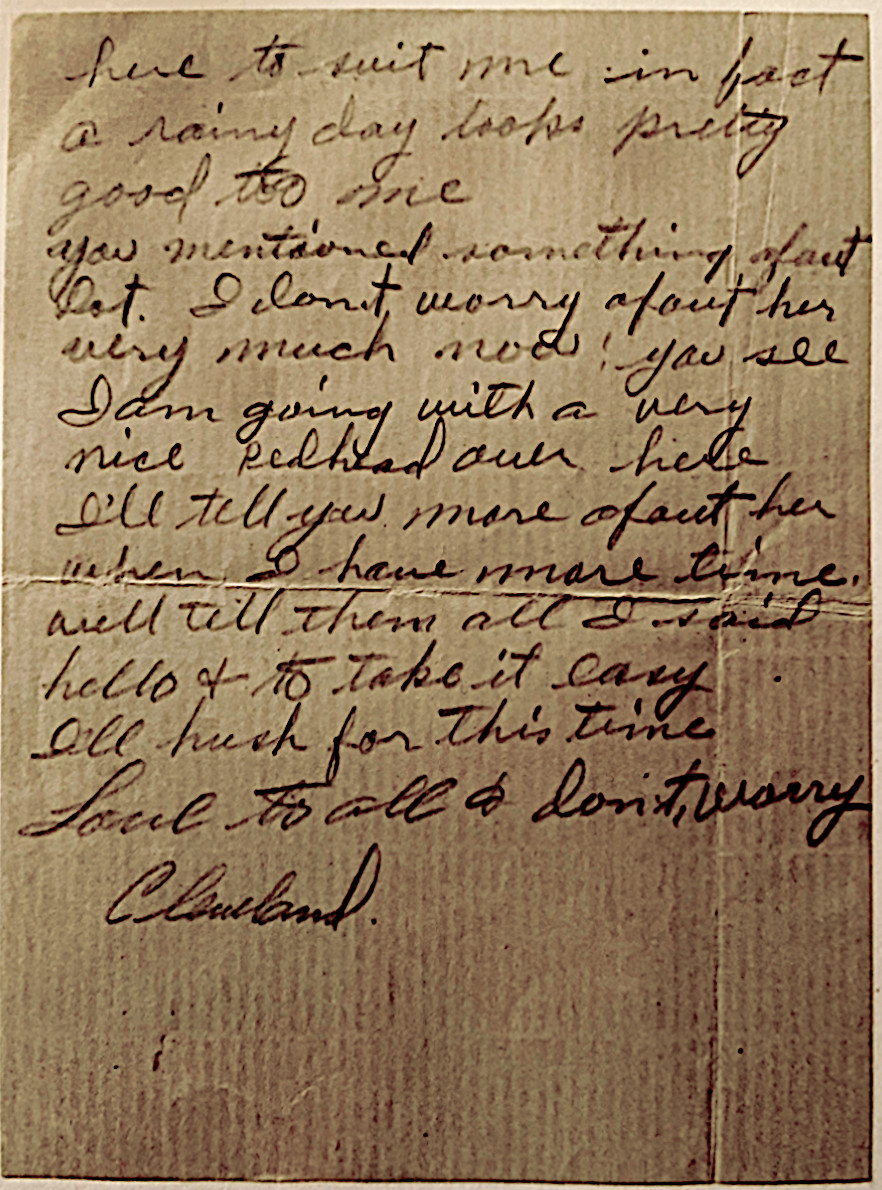 here to suit me in fact
a rainy day looks pretty
good to me
you mentioned something about
Dot. I don't worry about her
very much now! you see
I am going with a very
nice redhead over here
I'll tell you more about her
when I have more time.
well tell them all I said
hello & to take it easy
I'll hush for this time
Love to all & don't worry
Cleveland.